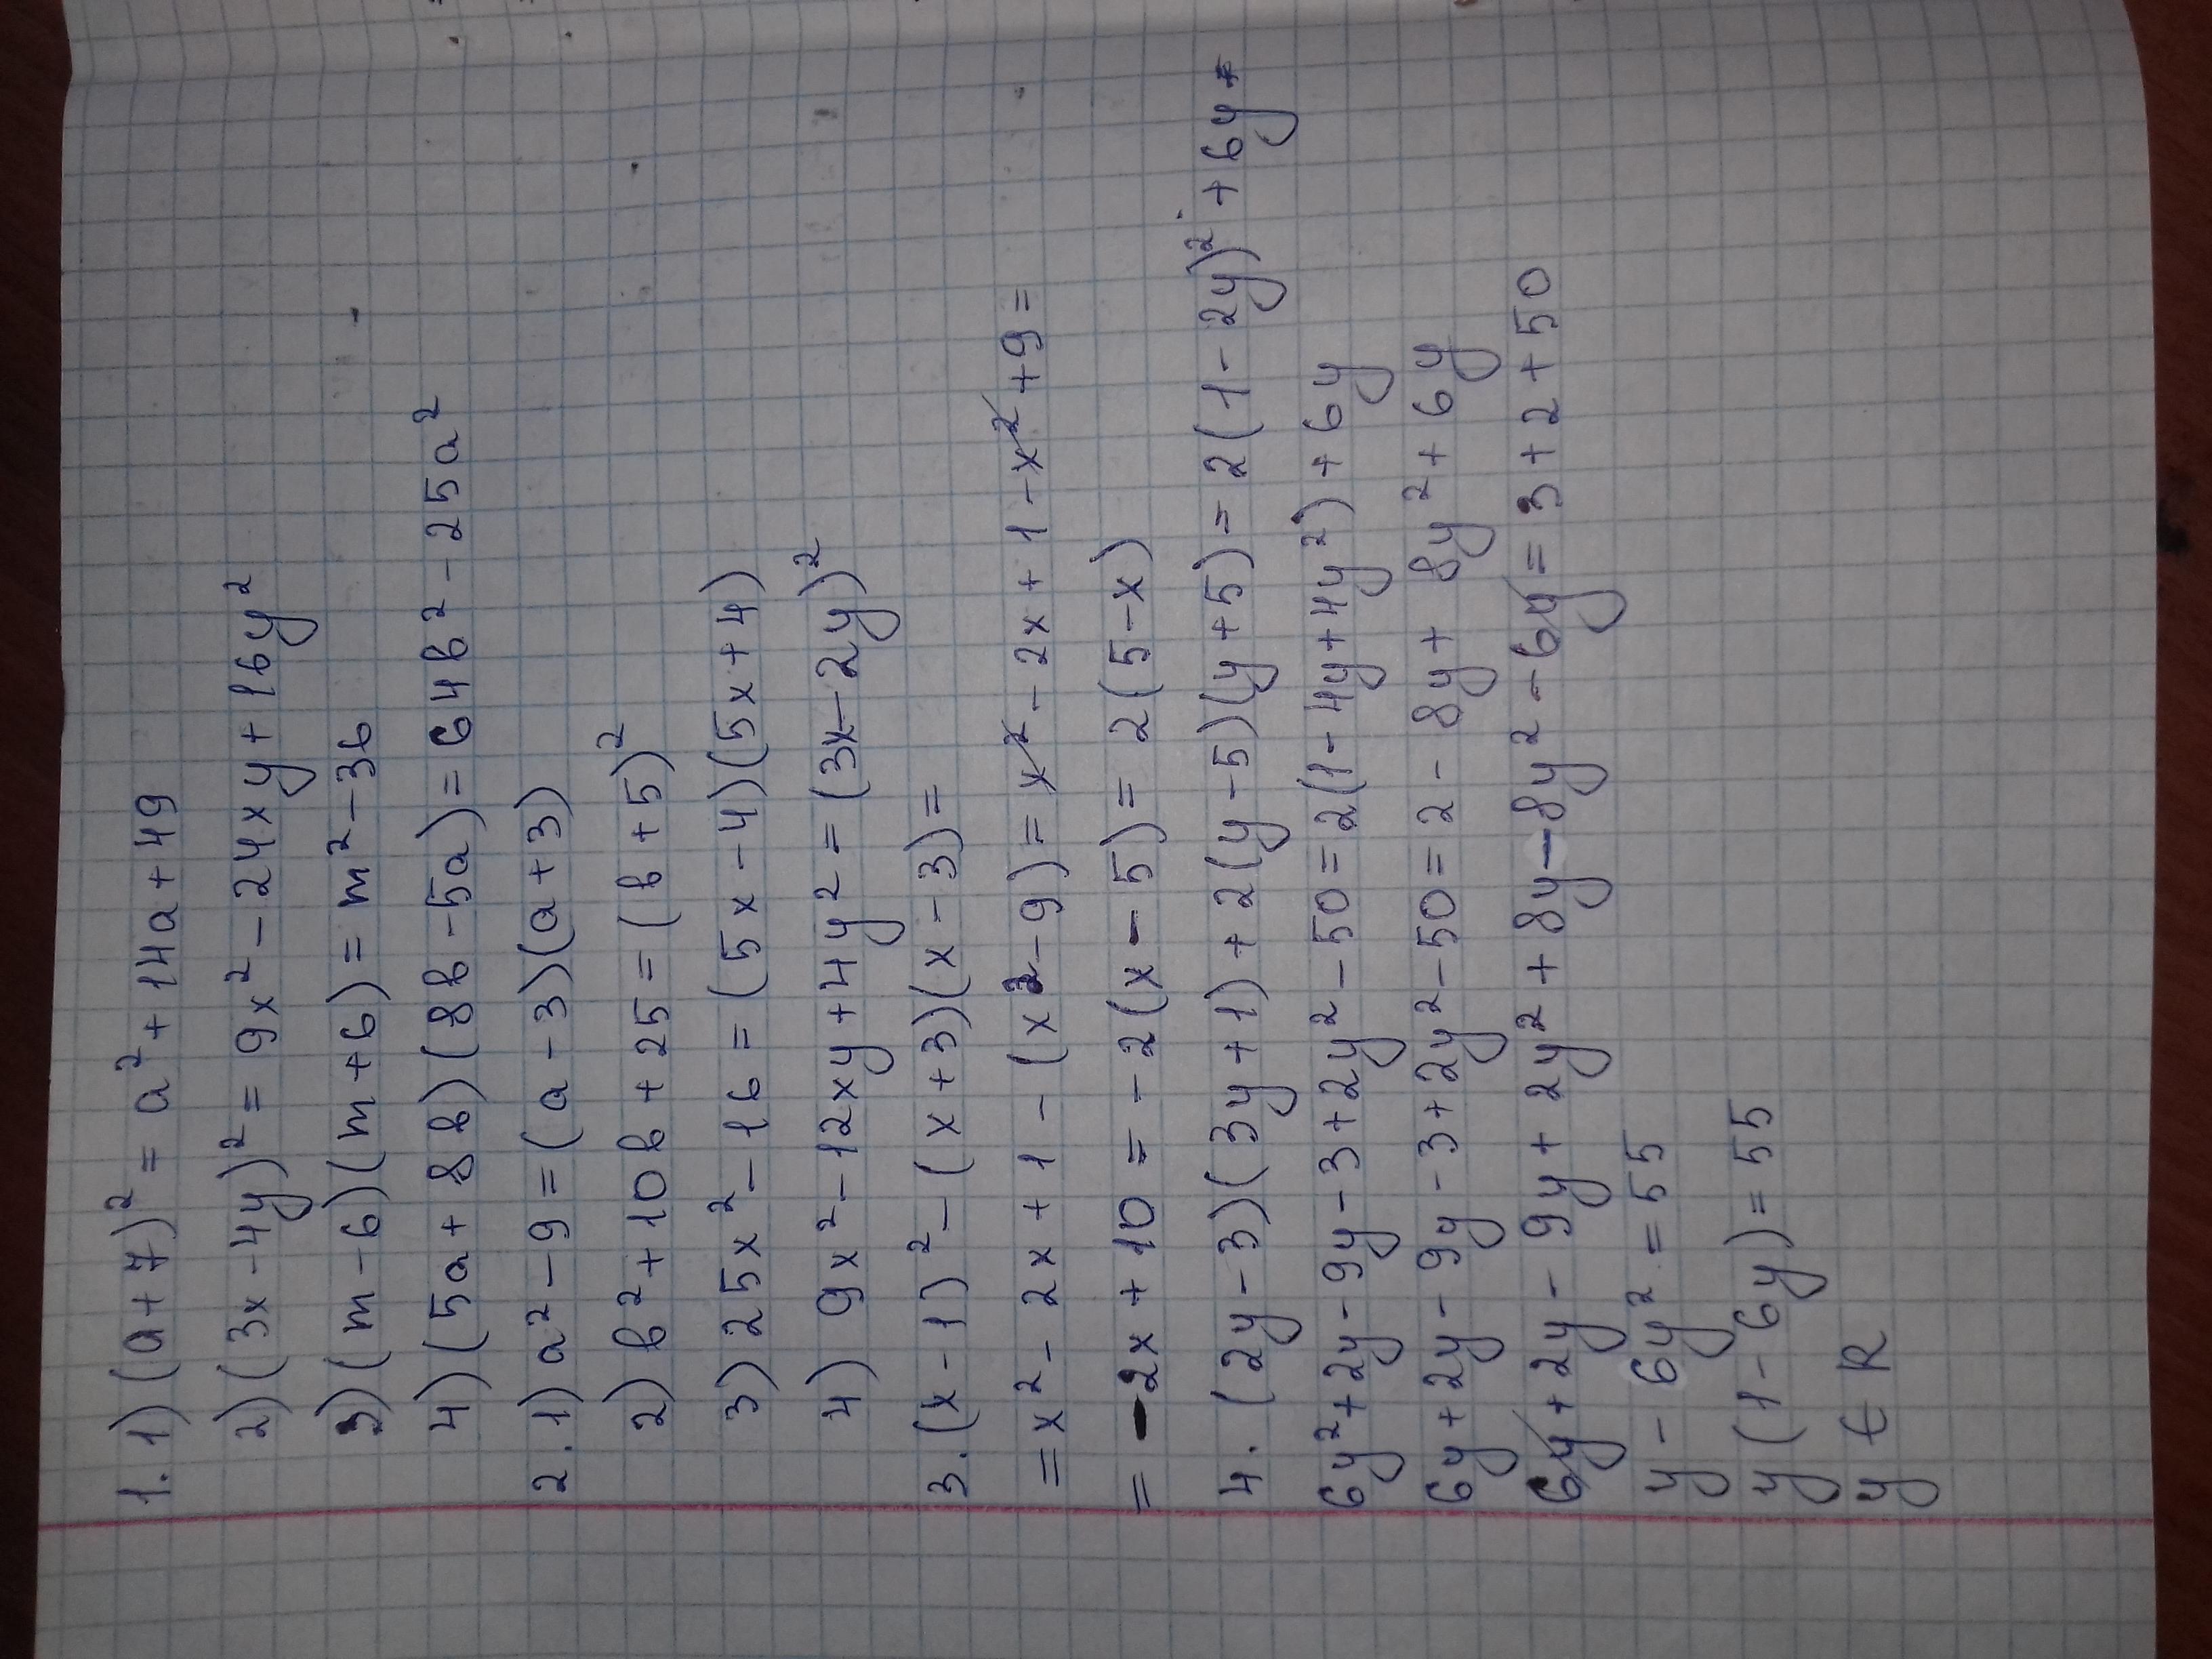 1. 1) (a+7)² = a²+14a+49
2) (3x-4y)² = 9x²-24xy+16y²
3) (m-6)(m+6) = m²-36
4) (5a+8в)(8в-5a) = 64в²-25a²
2. 1) a²-9 = (a-3)(a+3)
2) в²+10в+25 = (в+5)²
3) 25x²-16 = (5x-4)(5x+4)
4) 9x²-12xy+4y² = (3x-2y)²
3. (x-1)²-(x+3)(x-3) =
= x²-2x+1-(x²-9) = x²-2x+1-x²+9 =
= -2x+10 = -2(x-5) = 2(5-x)
4. (2y-3)(3y+1)+2(y-5)(y+5) = 2(1-2y)²+6y
6y²+2y-9y-3+2y²-50 = 2(1-4y+4y²)+6y
6y+2y-9y-3+2y²-50 = 2-8y+8y²+6y
6y+2y-9y+2y²+8y-8y²-6y = 3+2+50
y-6y² = 55
y(1-6y) = 55
y ∈ R